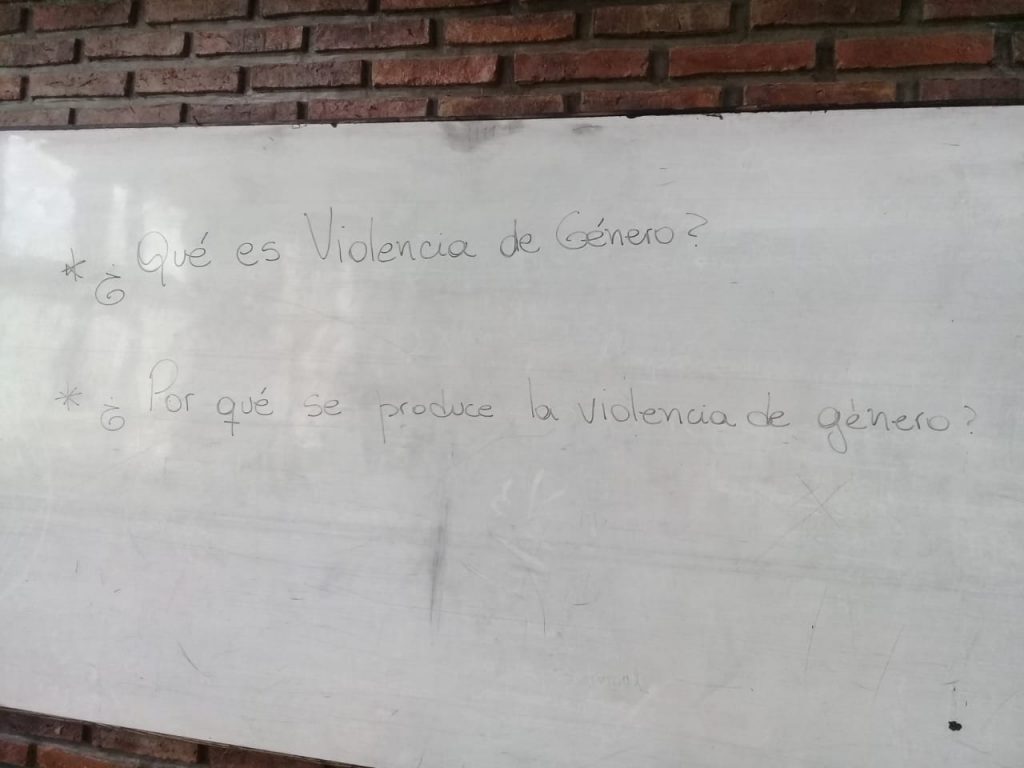 * ¿Qué es Violencia de Género?
* ¿Por qué se produce la violencia de género?